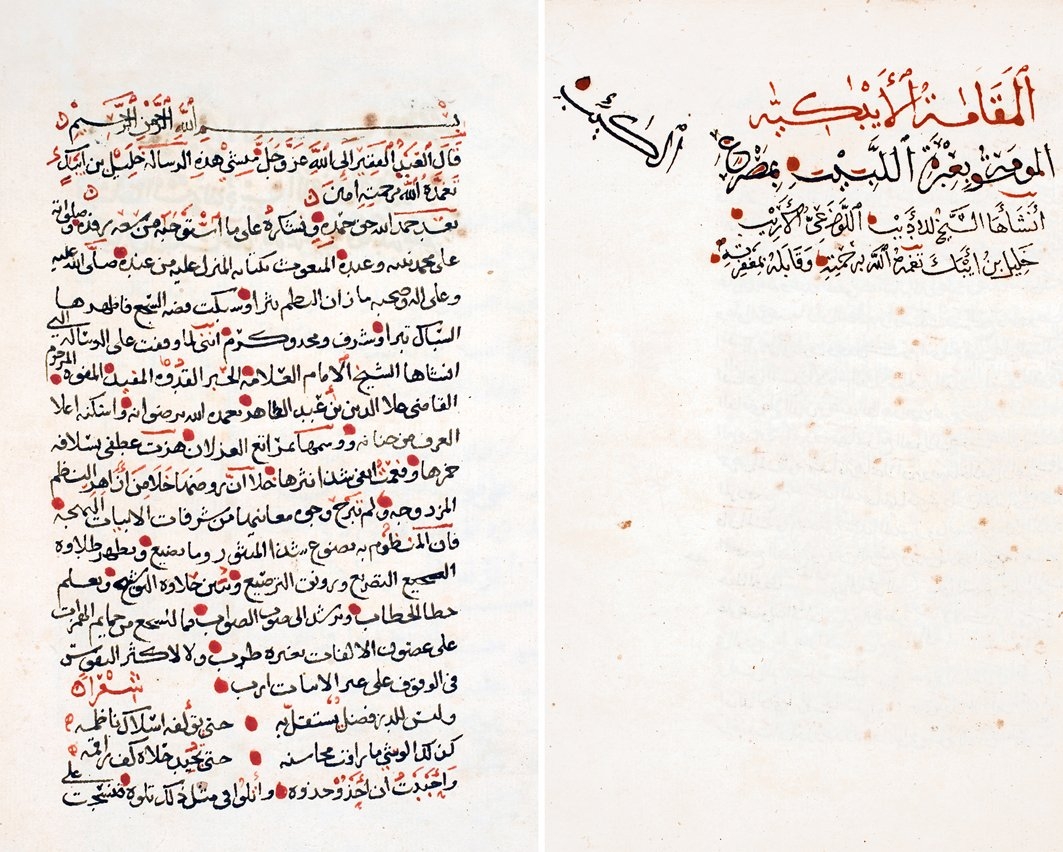 المقامة الأيبكية
الموسومة بعبرة اللبيب بمصرع
الكئيب
أنشأها الشيخ الأديب اللوذعي الأريب
خليل بن أيبك تغمده الله برحمته وقابله بمغفرته
بسم الله الرحمن الرحيم
قال العبد الفقير إلى الله عز وجل منشئ هذه الرسالة خليل بن أيبك
تغمده الله برحمته امين
بعد حمد الله حق حمده ونشكره على ما استوجبه من رفده وصلواته
على محمد نبيه وعبده المنعوت بكتابه المنزل عليه من عنده صلى الله عليه
وعلى اله وصحبه ما زان النظم نثرا وسبكت فضة السجع فاظهرها
السباك تبرا وشرف ومجد وكرم انني لما وقفت على الرسالة التي
انشاها الشيخ الامام العلامة الحبر القدوة المفيد المفوه المرحوم
القاضي علا الدين بن عبد الظاهر تغمده الله برضوانه واسكنه اعلا
الغرف من جنانه ووسمها بمراتع الغزلان هزت عطفي بسلافة
خمرها انفي بشذا نثرها خلا ان روضها خلا من ان اهر النظم
المزدوجة ولم تبرح وجوه معانيها من شرفات الابيات
فان المنظوم به يضوع شذا المنثور وما يضيع ويظهر طلاوة
التصريع ورونق الترصيع وتبين حلاوة التوشيح ويعلم
خطا الخطاب ويرشد الى صوب الصواب فما لسجع من حمايم الهمزات
على غصون الالفات بغيره طرب ولا لاكثر النفوس
في الوقوف على غير الابيات ارب شعر
وليس للدر فضل يستقل به حتى تولفه اسلاك ناظمه
كن كذا الوشي ما راقت محاسنه حتى تجيد حلاه كف راقمه
واحببت ان احذو حذوه واتلوا في مثل ذلك تلوه فنسجت على